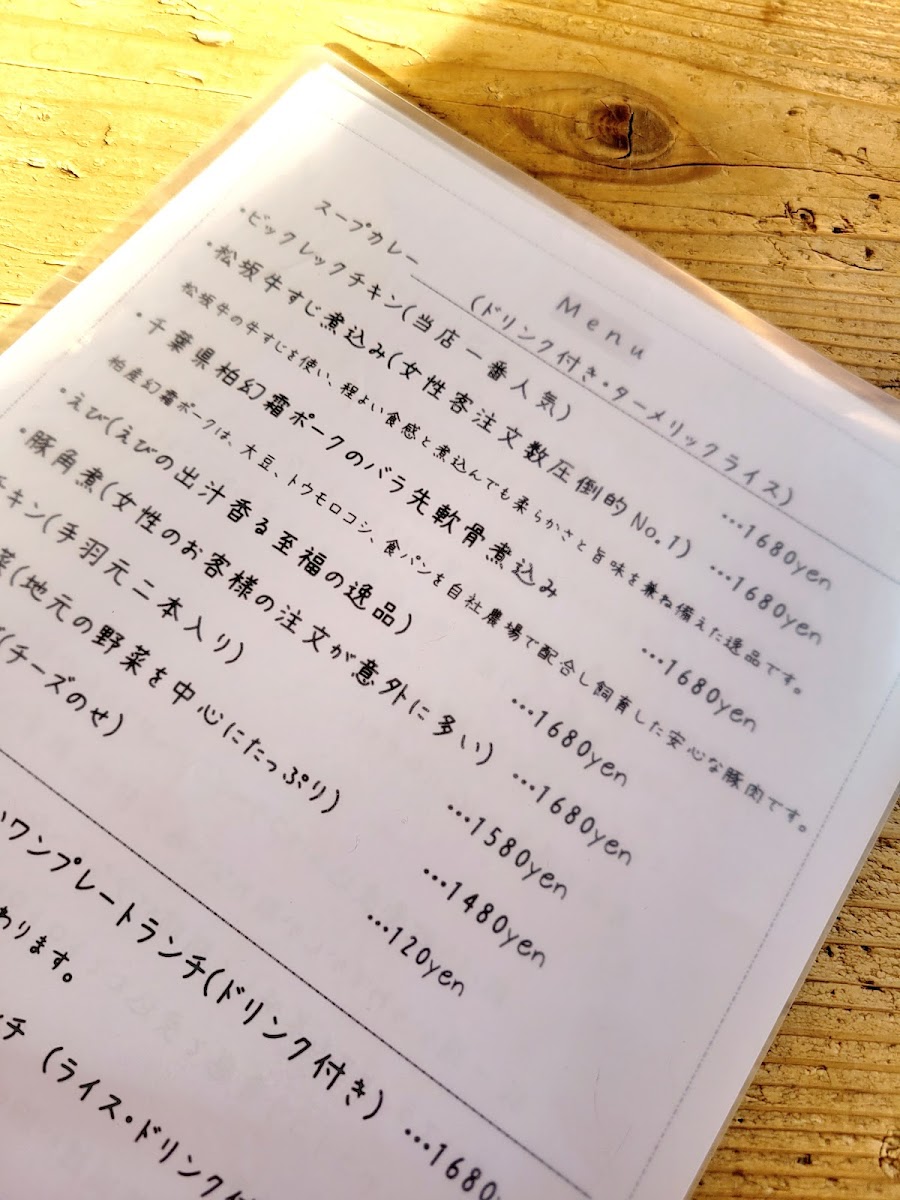 Menu
スープカレー (ドリンク付き・ターメリックライス)
・ビックレックチキン(当店一番人気) …1680yen
・松坂牛すじ煮込み(女性客注文数圧倒的No.1) …1680yen
松坂牛の牛すじを使い、程よい食感と煮込んでも柔らかさと旨味を兼ね備えた逸品です。
・千葉県柏幻霜ポークのバラ先軟骨煮込み …1680yen
柏産幻霜ポークは、大豆、トウモロコシ、食パンを自社農場で配合し飼育した安心な豚肉です。
・えび(えびの出汁香る至福の逸品) …1680yen
・豚角煮(女性のお客様の注文が意外に多い) …1680yen
チキン(手羽元二本入り) …1580yen
菜(地元の野菜を中心にたっぷり) …1480yen
(チーズのせ) …120yen
ワンプレートランチ(ドリンク付き) …1680
わります。
チ (ライス・ドリンク付